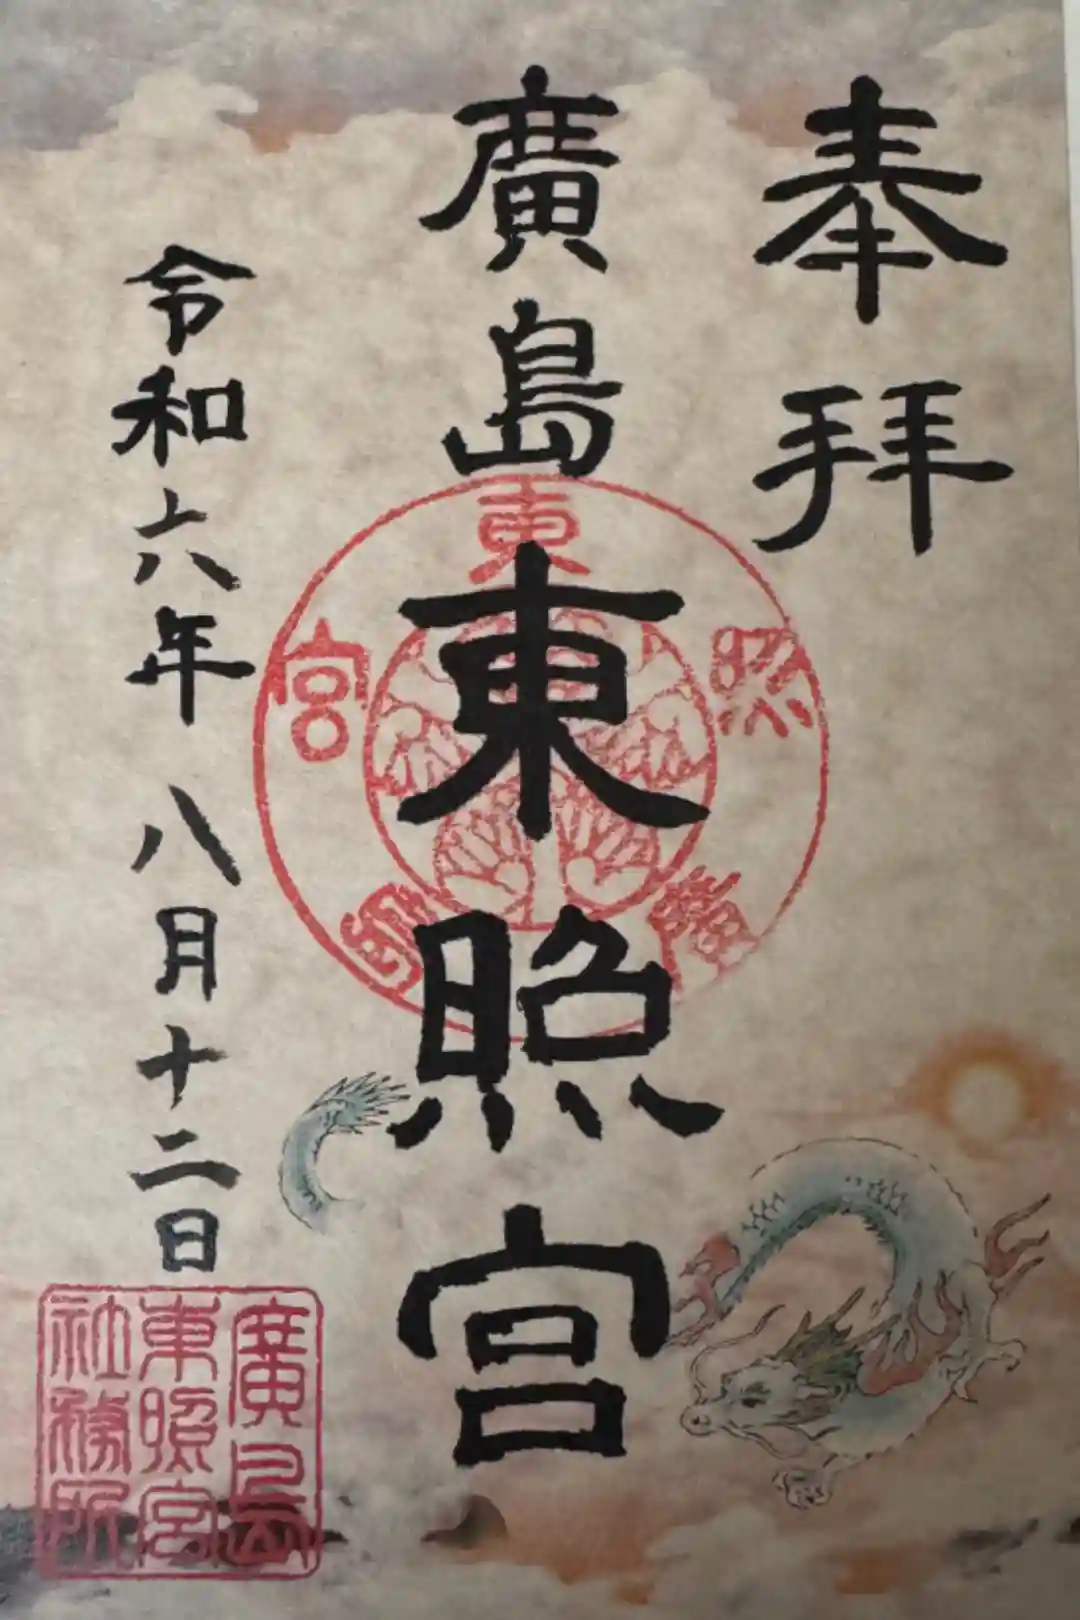 奉拝
廣島東照宮
令和六年 八月十二日
東照宮廣島
廣島
東照宮
社務所